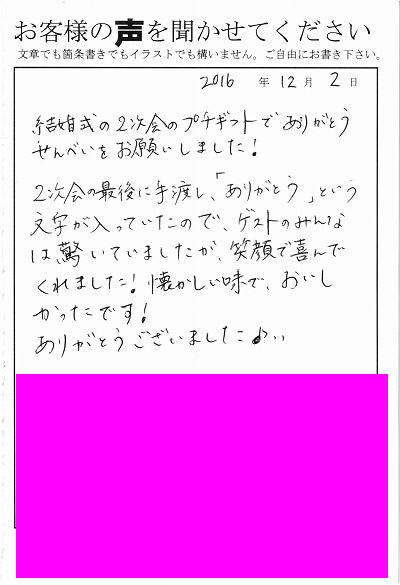 お客様の声を聞かせてください
文章でも箇条書きでもイラストでも構いません。ご自由にお書き下さい。
2016 年 12 月 2 日
結婚式の2次会のプチギフトでありがとう
せんべいをお願いしました!
2次会の最後に手渡し、「ありがとう」という
文字が入っていたので、ゲストのみんな
は驚いていましたが、笑顔で喜んで
くれました!懐かしい味で、おいし
かったです!
ありがとうございました♪..